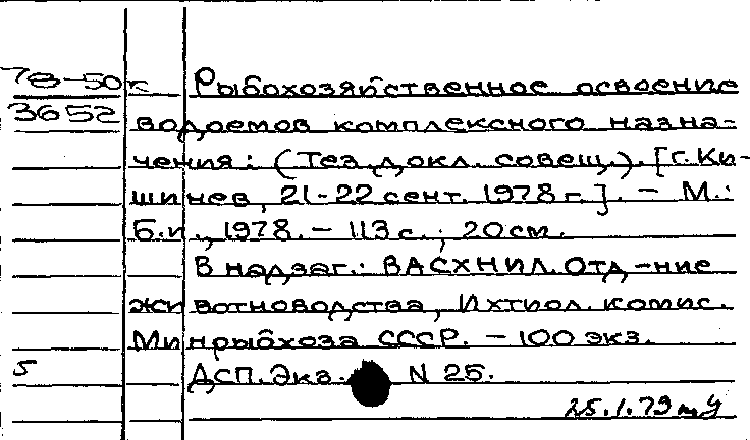 78-50к Рыбохозяйственное освоение
3652 водоемов комплексного назна-
чения: (Тез. докл. совещ.). [г. Ки-
шинев, 21-22 сент. 1978 г.]. - М.:
Б.и., 1978. - 113 с.; 20 см.
В надзаг.: ВАСХНИЛ. Отд-ние
животноводства, Ихтиол. комис.
Минрыбхоза СССР. - 100 экз.
5 ДСП. Экз. N 25.
25.1.79